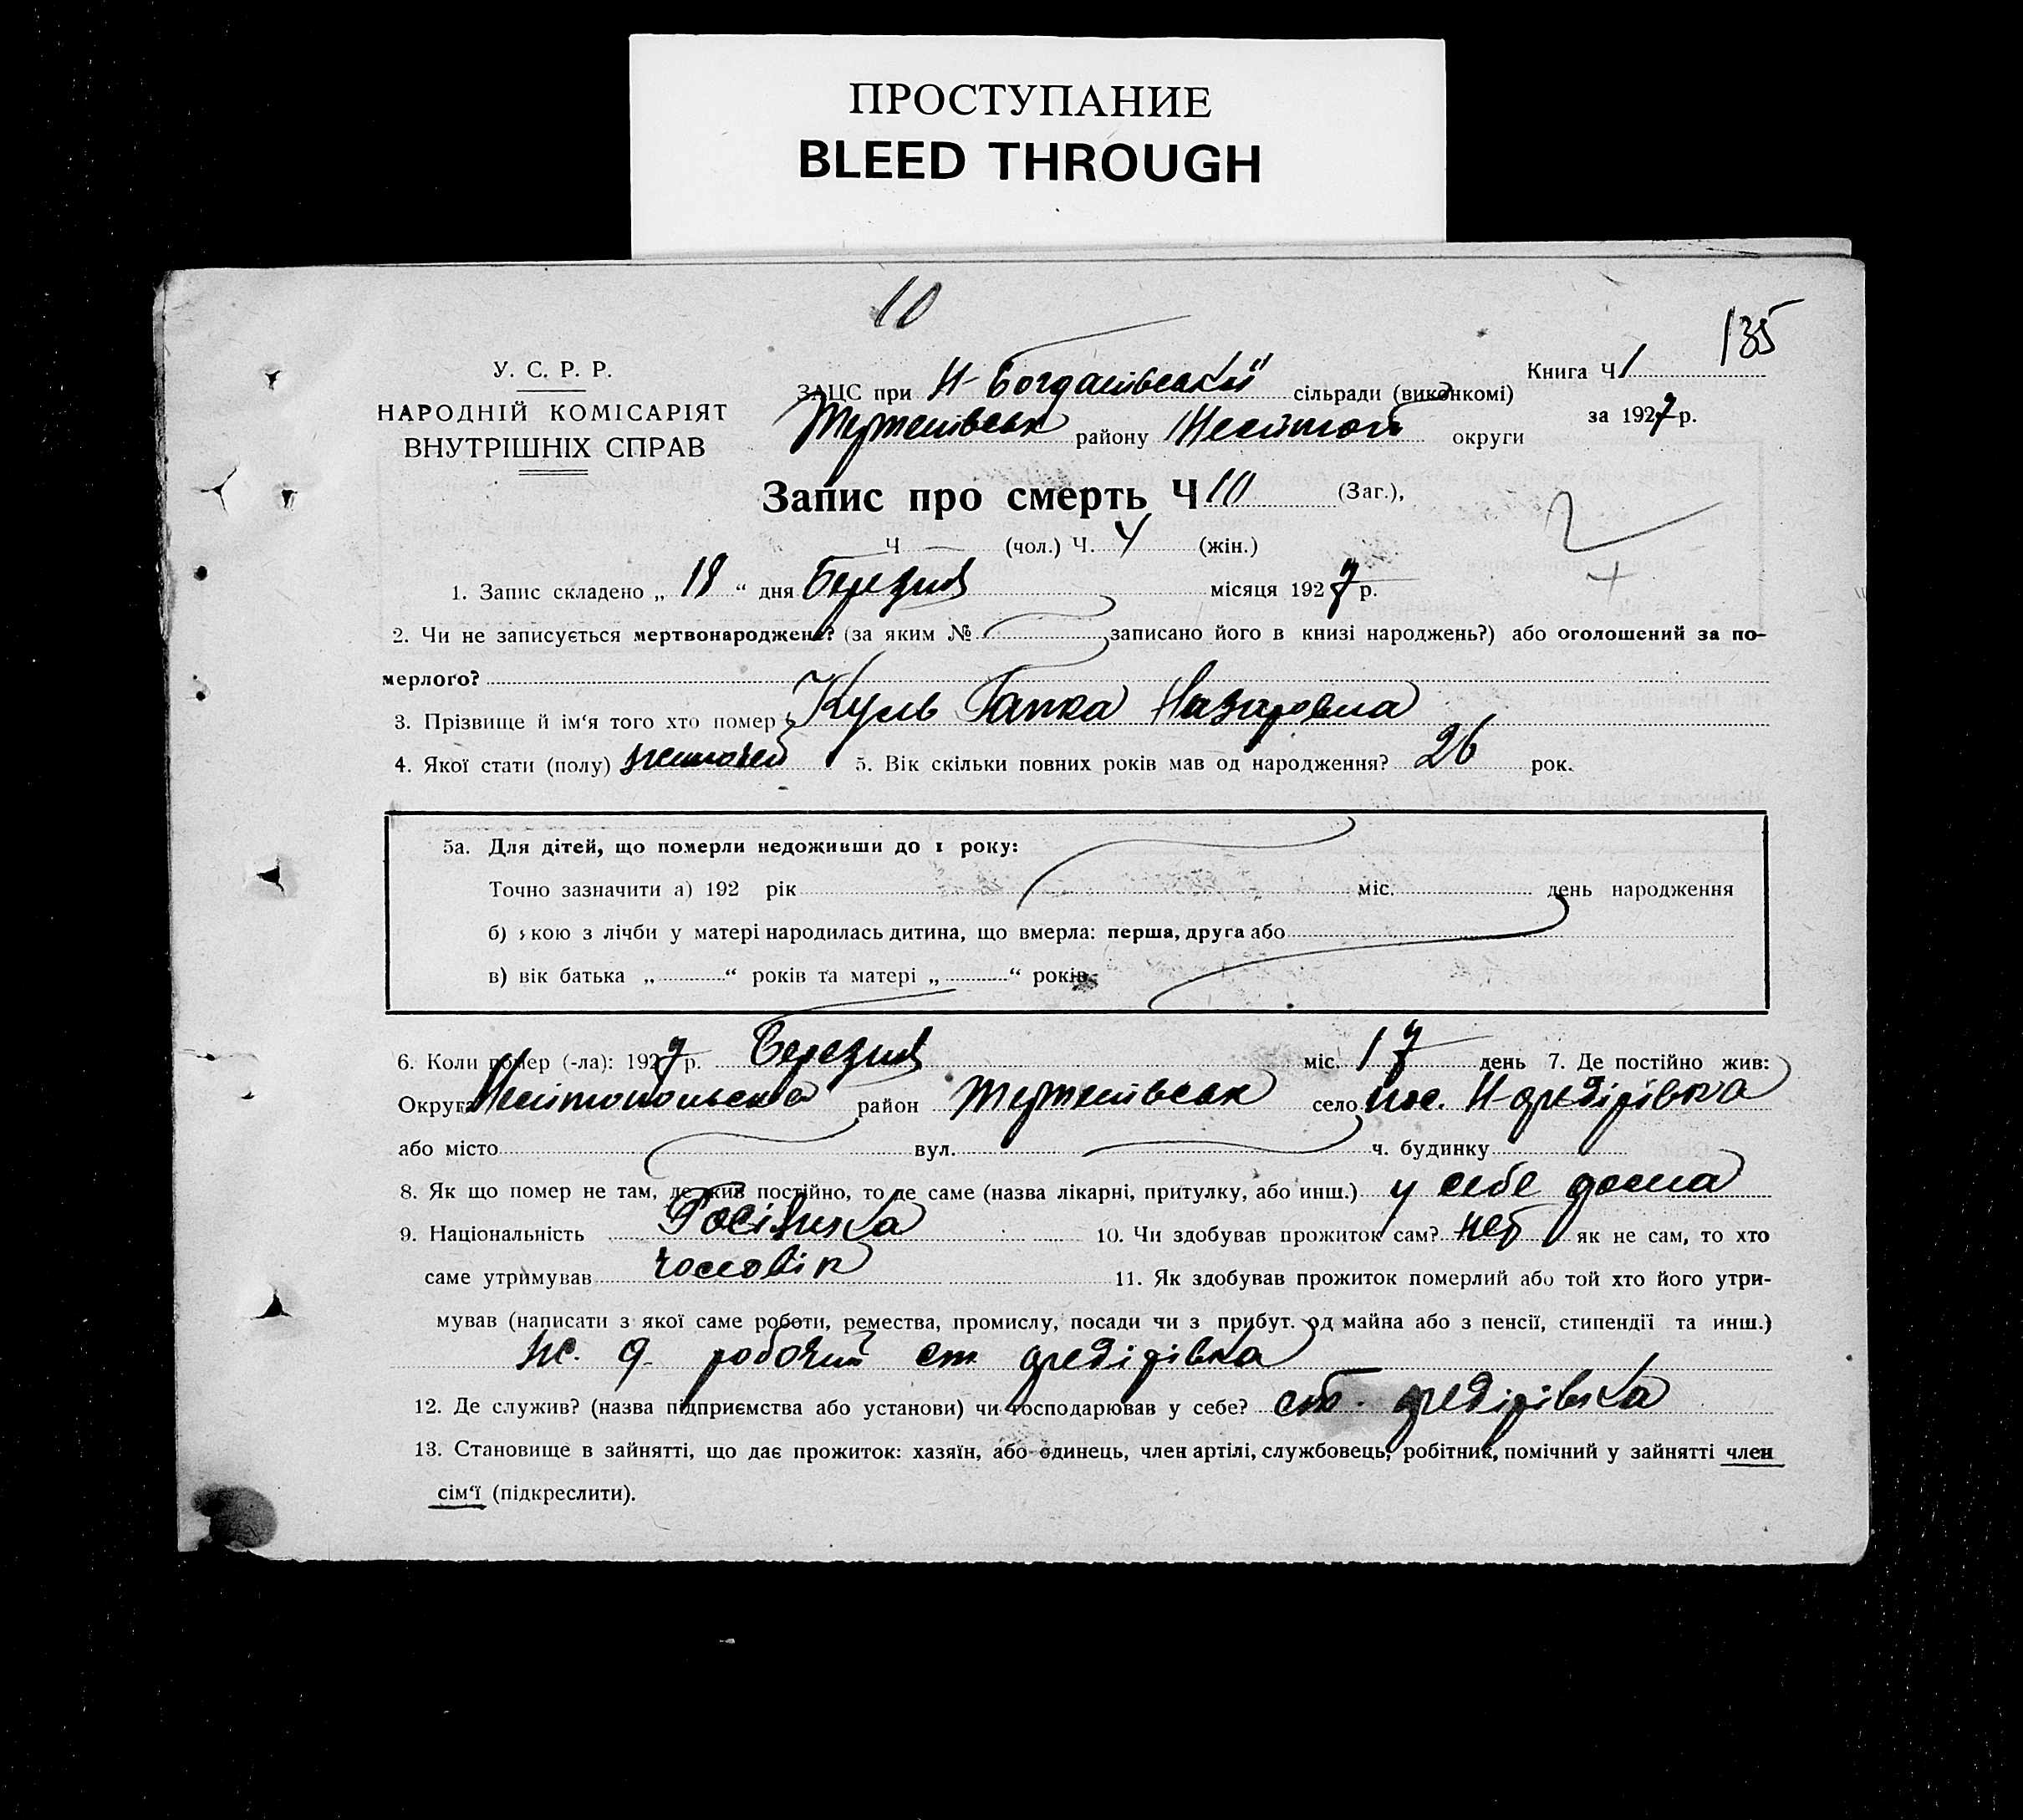 ПРОСТУПАНИЕ
BLEED THROUGH
10
135
У. С. Р. Р.
НАРОДНІЙ КОМІСАРІЯТ
ВНУТРІШНІХ СПРАВ
ЗАЦС при Н-Богданівської сільради (виконкомі)
району округи
Книга Ч 1
за 1927 р.
Запис про смерть Ч 10 (Заг.),
Ч — (чол.) Ч. 4 (жін.)
1. Запис складено „ 18 “ дня Березня місяця 1927 р.
2. Чи не записується мертвонароджене? (за яким № записано його в книзі народжень?) або оголошений за по-
мерлого?
3. Прізвище й ім‘я того хто помер Куль Гапка Назаровна
4. Якої стати (полу) 5. Вік скільки повних років мав од народження? 26 рок.
5а. Для дітей, що померли недоживши до 1 року:
Точно зазначити а) 192 рік міс. день народження
б) якою з лічби у матері народилась дитина, що вмерла: перша, друга або
в) вік батька „ “ років та матері „ “ років.
6. Коли помер (-ла): 1927 р. Березня міс. 17 день 7. Де постійно жив:
Округа район село пос. Н-
або місто вул. ч. будинку
8. Як що помер не там, де жив постійно, то де саме (назва лікарні, притулку, або инш.) у себе дома
9. Національність Росіянка 10. Чи здобував прожиток сам? нет як не сам, то хто
саме утримував чоловік 11. Як здобував прожиток померлий або той хто його утри-
мував (написати з якої саме роботи, ремества, промислу, посади чи з прибут. од майна або з пенсії, стипендії та инш.)
ж. д. робочий ст
12. Де служив? (назва підприємства або установи) чи господарював у себе? ст.
13. Становище в зайнятті, що дає прожиток: хазяїн, або одинець, член артілі, службовець, робітник, помічний у зайнятті член
сім‘ї (підкреслити).